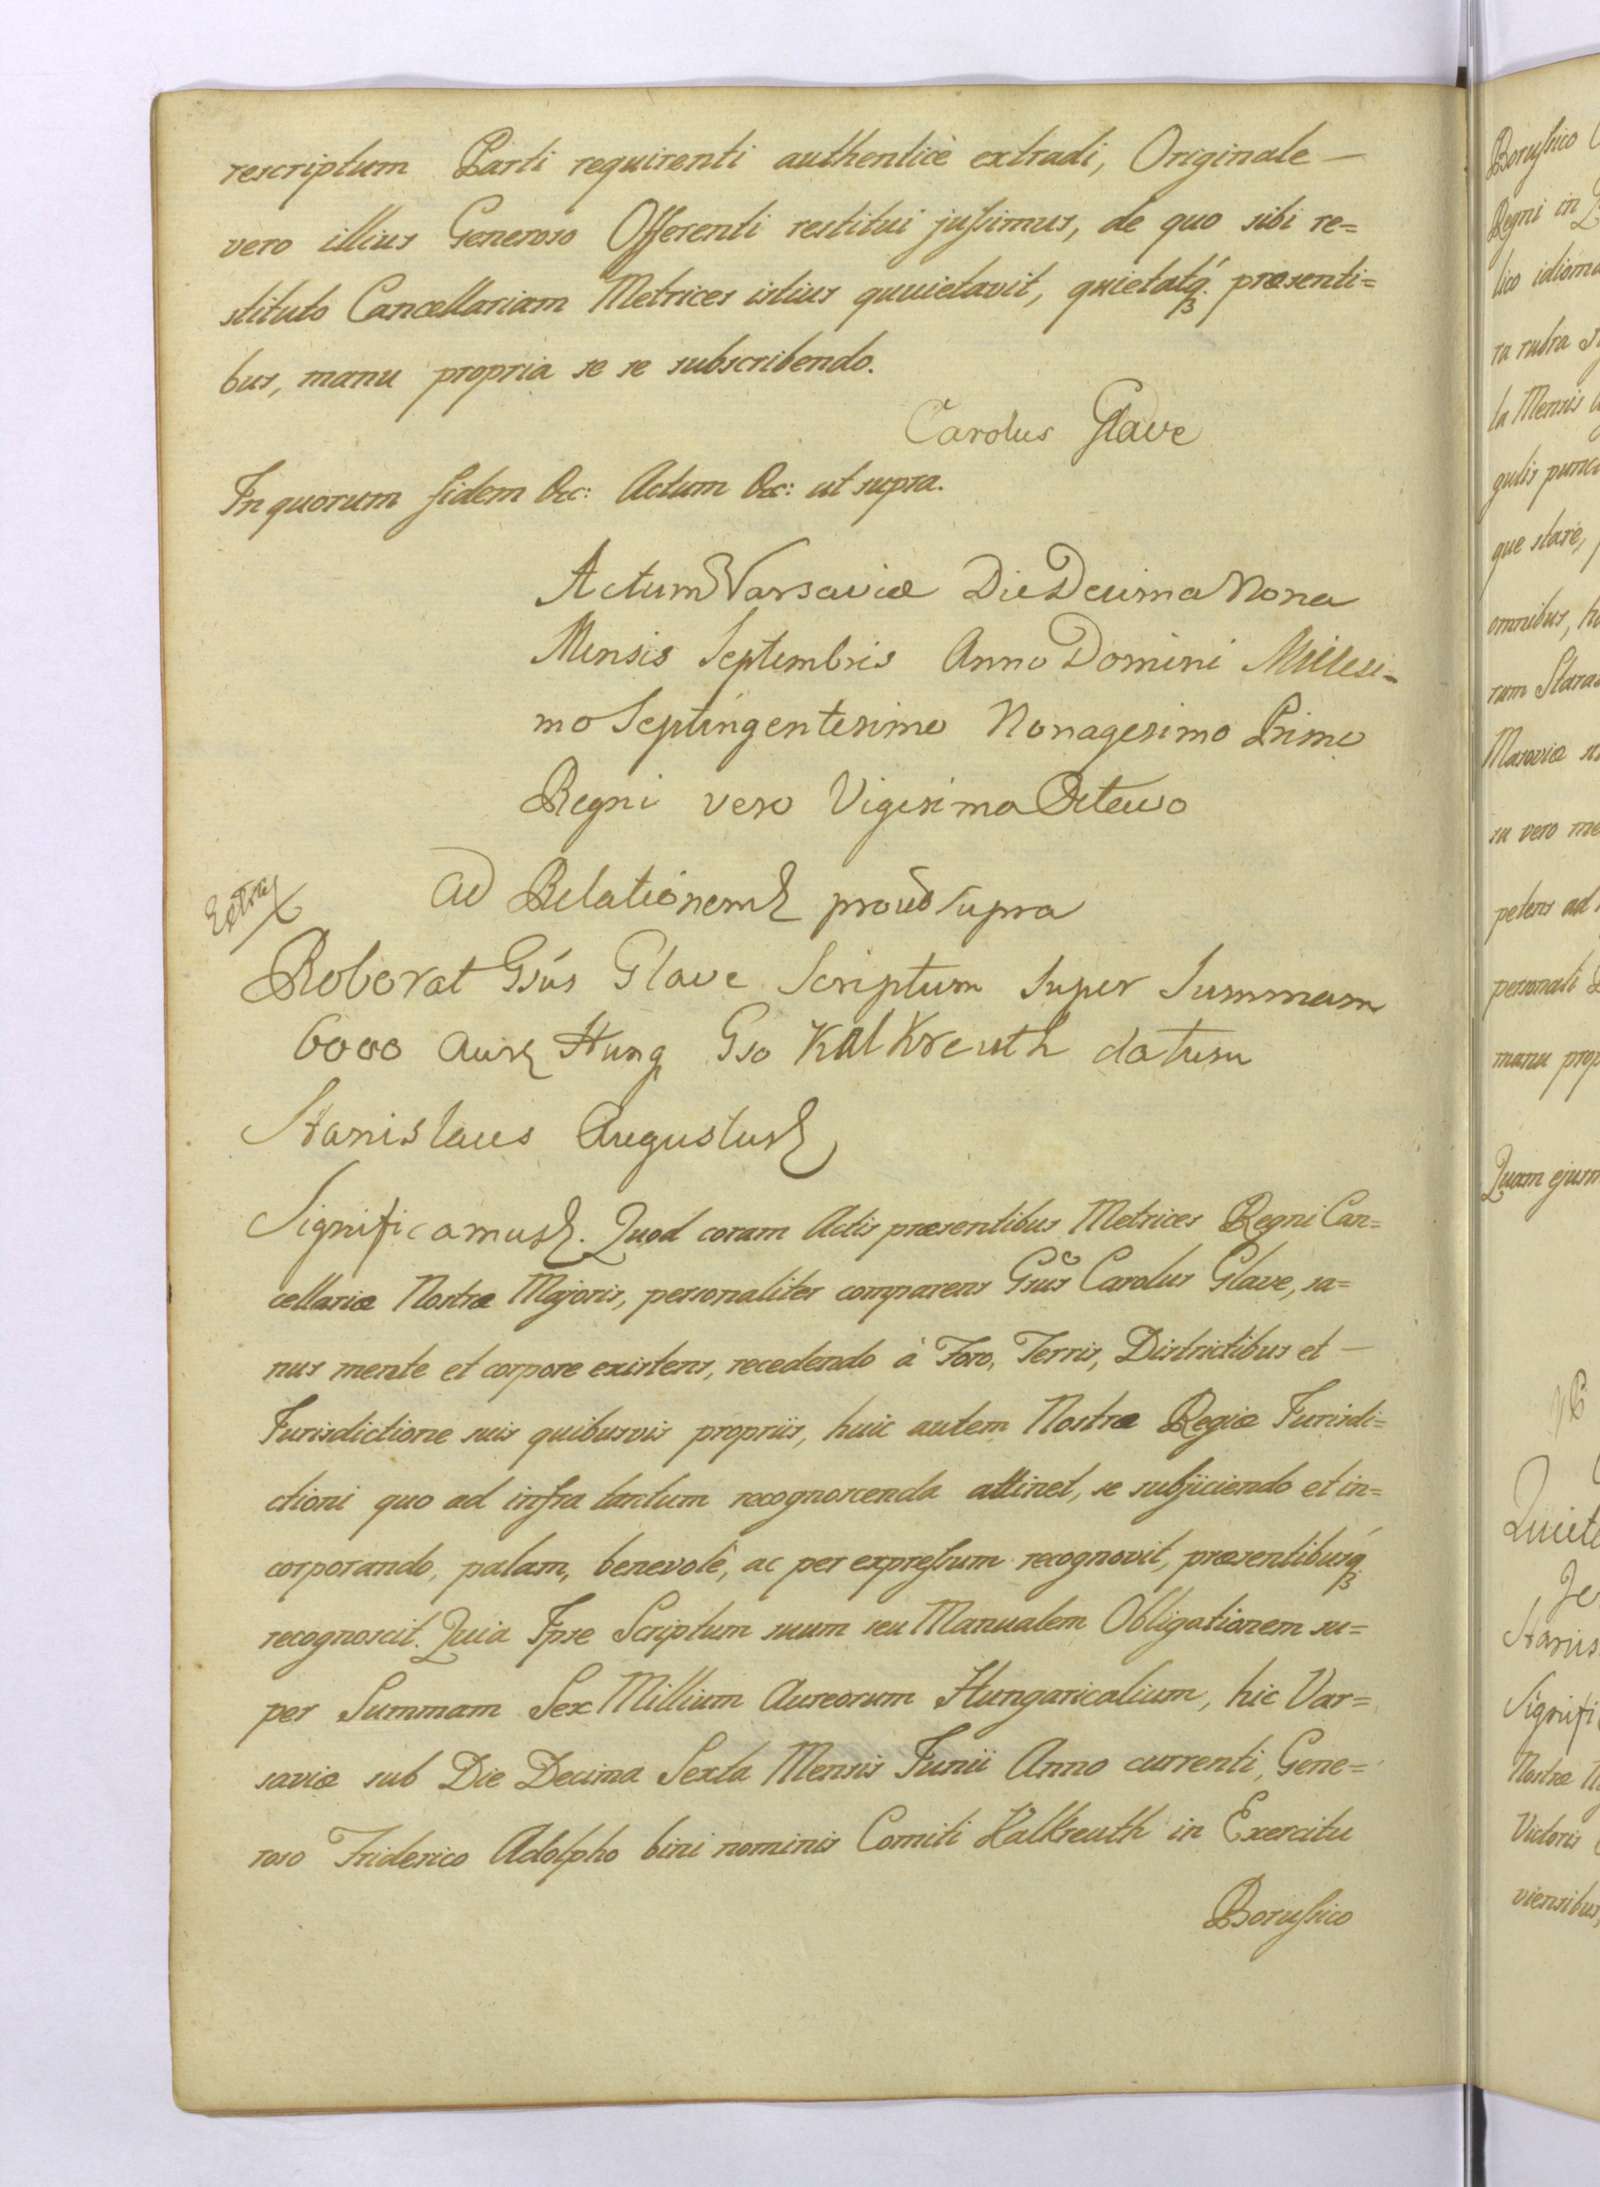 rescriptum Parti requirenti authenticè extradi, Originale —
vero illius Generoso Offerenti restitui jussimus, de quo sibi re=
stituto Cancellariam Metrices istius quuietavit, quietatq́ꝫ. præsenti=
bus, manu propria se se subscribendo.
Carolus Glave
In quorum fidem &c: Actum &c: ut supra.
Actum Varsaviæ Die Decima Nona
Mensis Septembris Anno Domini Millesi-
mo Septingentesimo Nonagesimo Primo
Regni vero Vigesimo Octavo
Extra
Ad Relationem& prout supra
Roborat Gsus Glave Scriptum super Summam
6000 Aur& Hung Gso Kalkreuth datum
Stanislaus Augustus&
Significamus&. Quod coram Actis præsentibus Metrices Regni Can=
cellariæ Nostræ Majoris, personaliter comparens Gsus Carolus Glave, sa=
nus mente et corpore existens, recedendo à Foro, Terris, Districtibus et —
Jurisdictione suis quibusvis propriis, huic autem Nostræ Regiæ Jurisdi=
ctioni quo ad infra tantum recognoscenda attinet, se subjiciendo et in=
corporando, palam, benevolè, ac per expressum recognovit, præsentibusq́ꝫ
recognoscit. Quia Ipse Scriptum suum seu Manualem Obligationem su=
per Summam Sex Millium Aureorum Hungaricalium, hic Var=
saviæ sub Die Decima Sexta Mensis Junii Anno currenti, Gene=
roso Friderico Adolpho bini nominis Comiti Kalkreuth in Exercitu
Borussico
Borussico
Regni in
lico idioma
ra rubra
la Mensis
gulis punc
que stare,
omnibus,
rum
Masoviæ
su vero me
petens ad
personati
manu prop
Quam ejusm
Quiet
Stanis
Signifi
Nostræ
Victoris
viensibus,